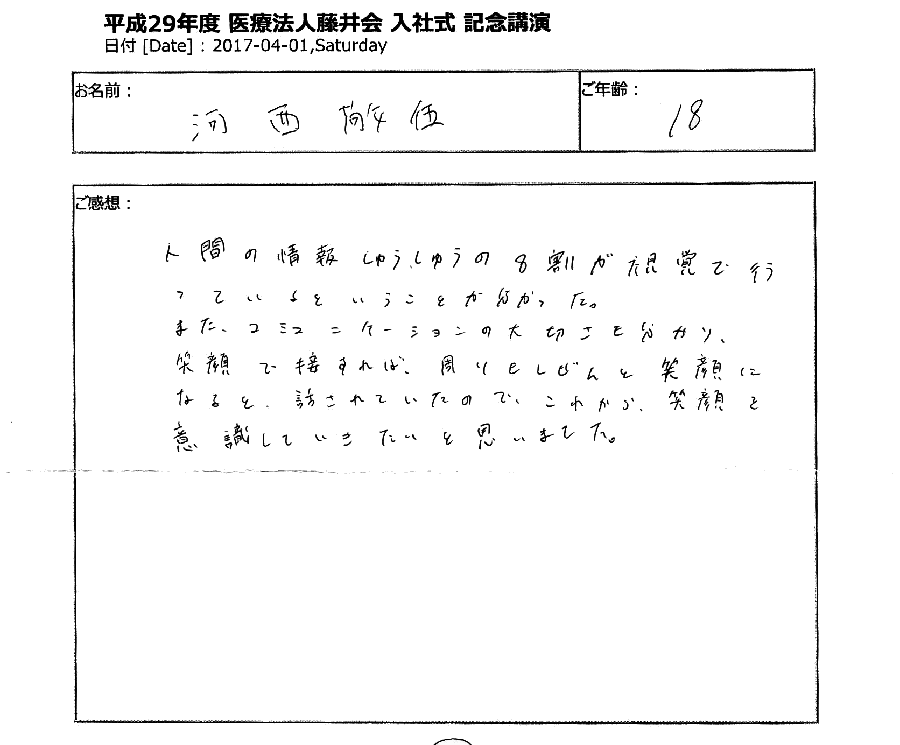 平成29年度 医療法人藤井会 入社式 記念講演
日付 [Date] : 2017-04-01,Saturday
お名前：
河西
ご年齢：
18
ご感想：
人間の情報しゅうしゅうの8割が視覚で行
っているということが分かった。
また、コミュニケーションの大切さも分かり、
笑顔で接すれば、周りもしぜんと笑顔に
なると、話されていたので、これから、笑顔を
意識していきたいと思いました。